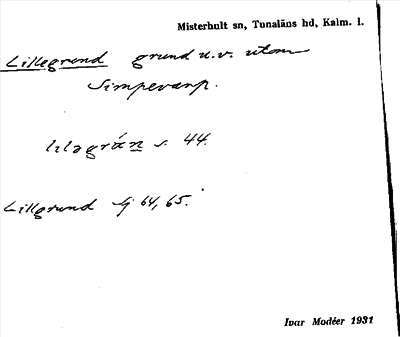 Misterhult sn, Tunaläns hd, Kalm. l.
Lillegrund grund u.v. utom
Simpevarp.
s. 44.
Lillgrund Gj 64, 65.
Ivar Modéer 1931